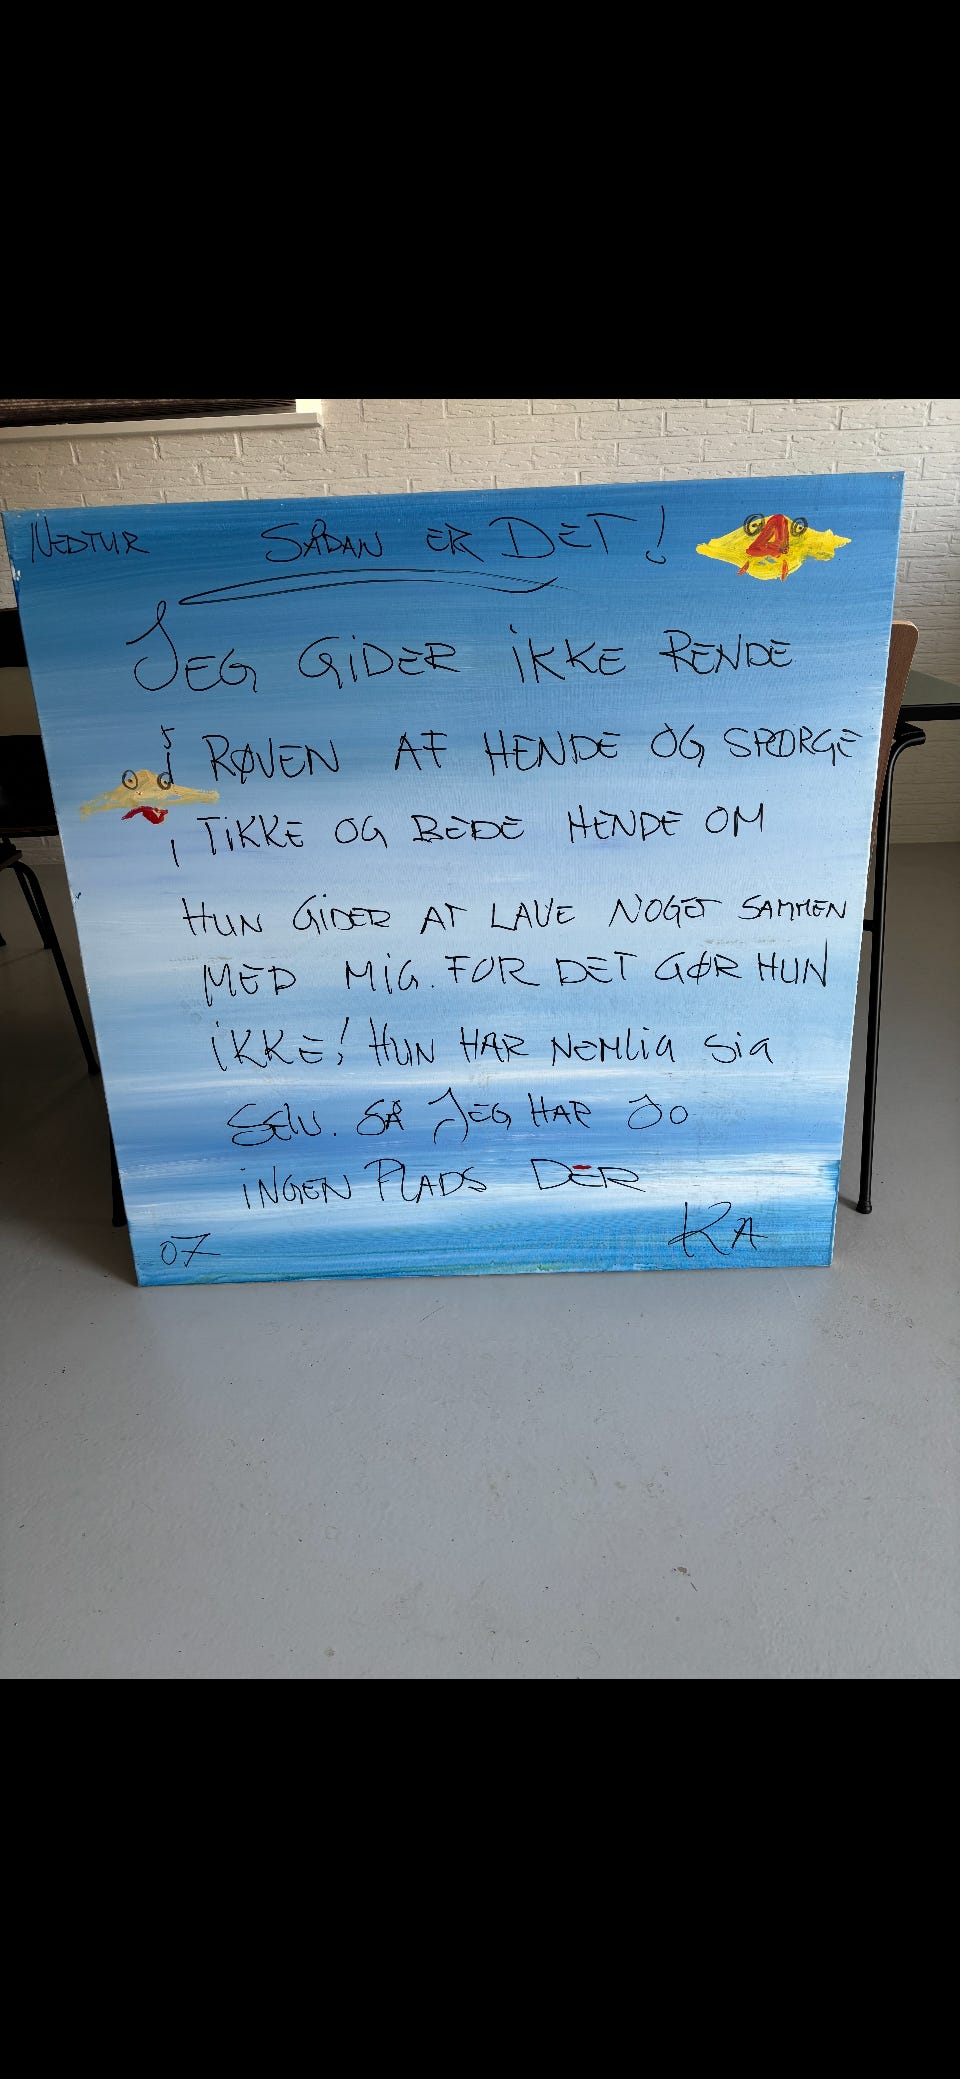 NEDTUR SÅDAN ER DET!
JEG GIDER IKKE RENDE
i RØVEN AF HENDE OG SPØRGE
TIKKE OG BEDE HENDE OM
HUN GIDER AT LAVE NOGET SAMMEN
MED MIG. FOR DET GØR HUN
IKKE! HUN HAR NEMLIG SIG
SELV. SÅ JEG HAR JO
INGEN PLADS DER
07 KA